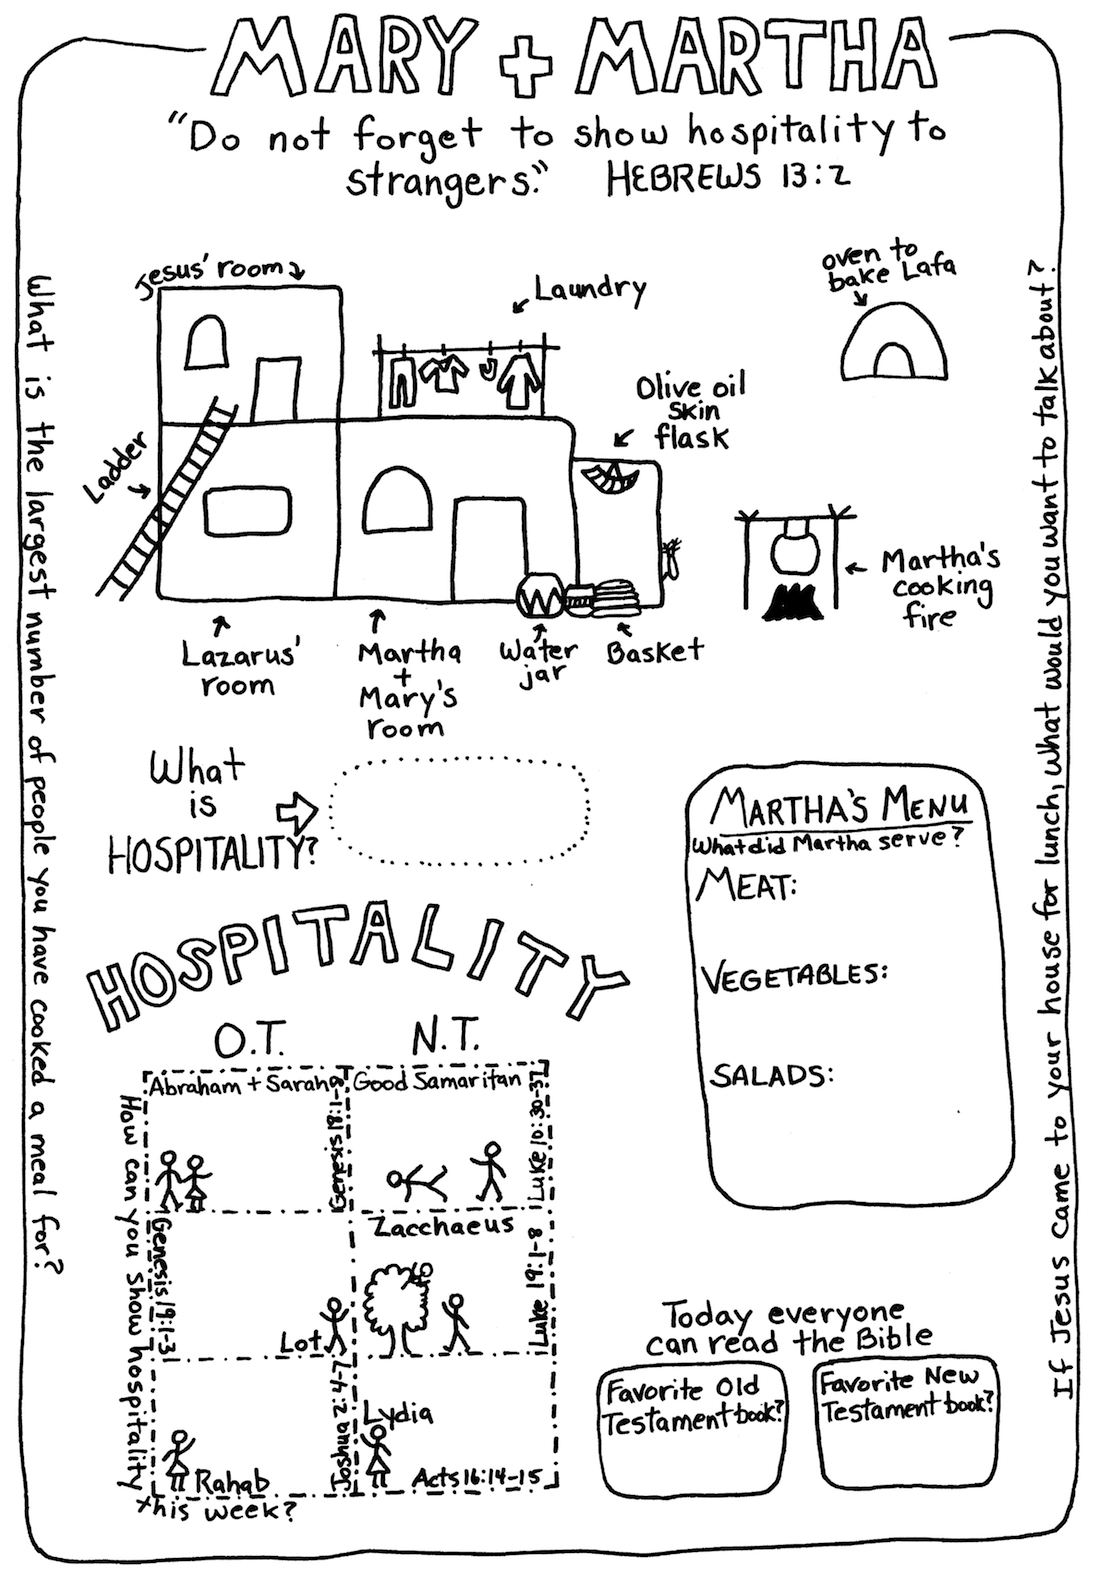 MARY + MARTHA
"Do not forget to show hospitality to
strangers." HEBREWS 13:2
What is the largest number of people you have cooked a meal for?
If Jesus came to your house for lunch, what would you want to talk about?
Jesus' room
Laundry
oven to
bake Lafa
Olive oil
skin
flask
Ladder
Martha's
cooking
fire
Lazarus'
room
Martha
+
Mary's
room
Water
jar
Basket
What
is
HOSPITALITY?
MARTHA'S MENU
What did Martha serve?
MEAT:
VEGETABLES:
SALADS:
HOSPITALITY
O.T.
N.T.
Abraham + Sarah
Good Samaritan
Luke 10:30-37
Zacchaeus
Luke 19:1-8
Genesis 19:1-3
Lot
Lydia
Acts 16:14-15
Rahab
How can you show hospitality
this week?
Today everyone
can read the Bible
Favorite Old
Testament book?
Favorite New
Testament book?